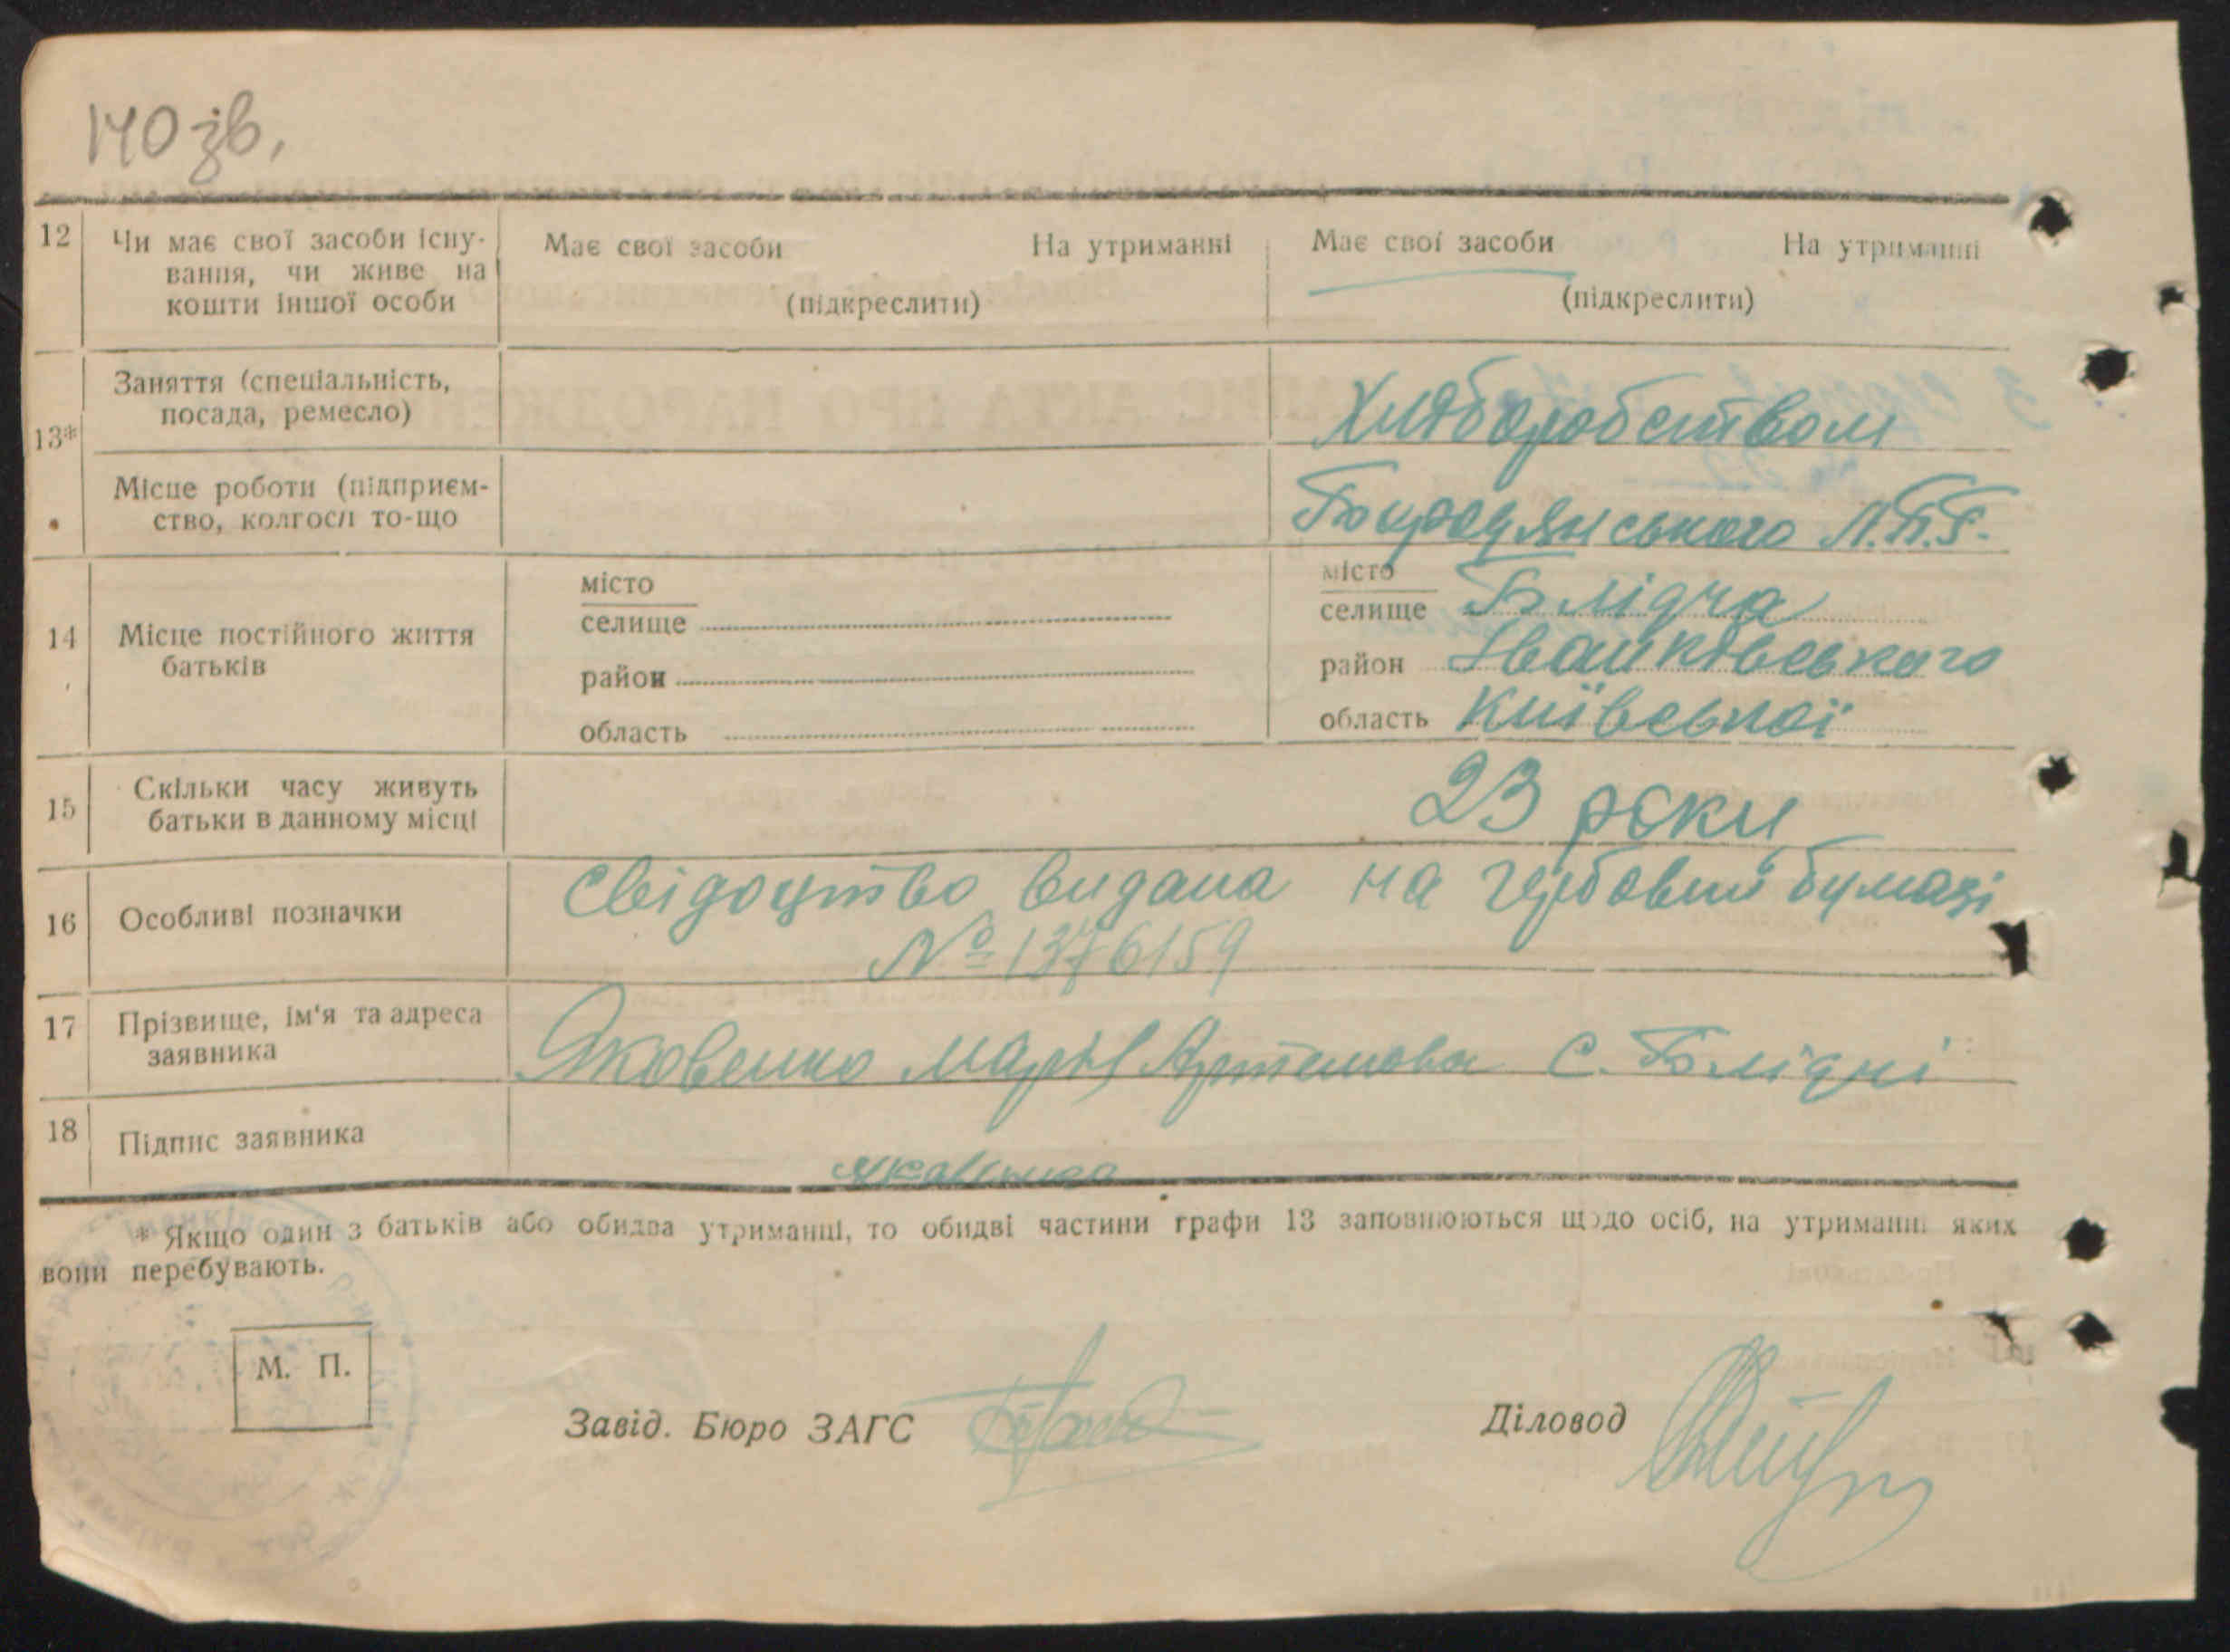 140 зв.
12 Чи має свої засоби існу-
вання, чи живе на
кошти іншої особи
Має свої засоби На утриманні
(підкреслити)
Має свої засоби На утриманні
(підкреслити)
13*
Заняття (спеціальність,
посада, ремесло)
Хліборобством
Місце роботи (підприєм-
ство, колгосп то-що
Бородянського Л.П.Г.
14 Місце постійного життя
батьків
місто
селище
район
область
місто
селище Блідча
район Іванківського
область Київської
15 Скільки часу живуть
батьки в данному місці
23 роки
16 Особливі позначки
свідоцтво видана на гербовий бумазі
№ 1376159
17 Прізвище, ім'я та адреса
заявника
Яковенко Марія Артемовна С. Блідчі
18 Підпис заявника
* Якщо один з батьків або обидва утриманці, то обидві частини графи 13 заповнюються щодо осіб, на утриманні яких
вони перебувають.
М. П.
Завід. Бюро ЗАГС
Діловод